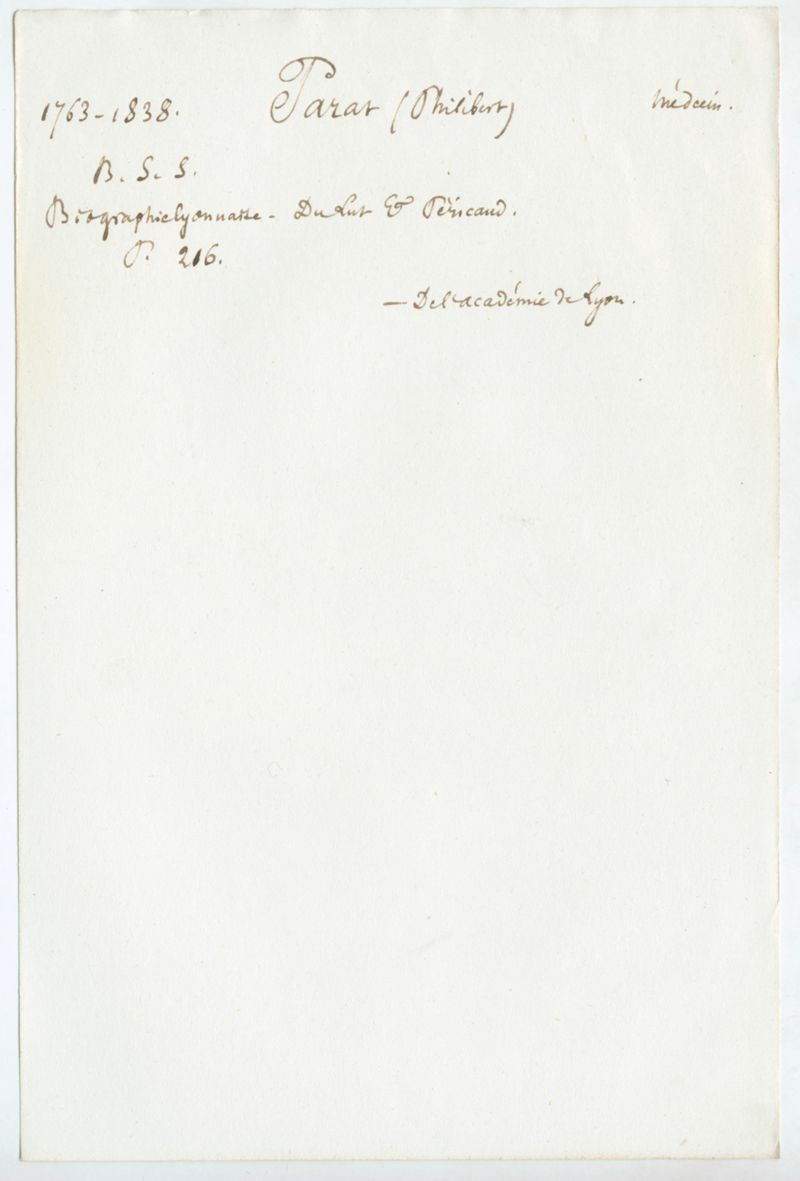 1763-1838. Parat (Philibert) Médecin.
B. S. S.
Biographie lyonnaise - Du Lut & Péricaud.
P. 216.
— De l'académie de Lyon.